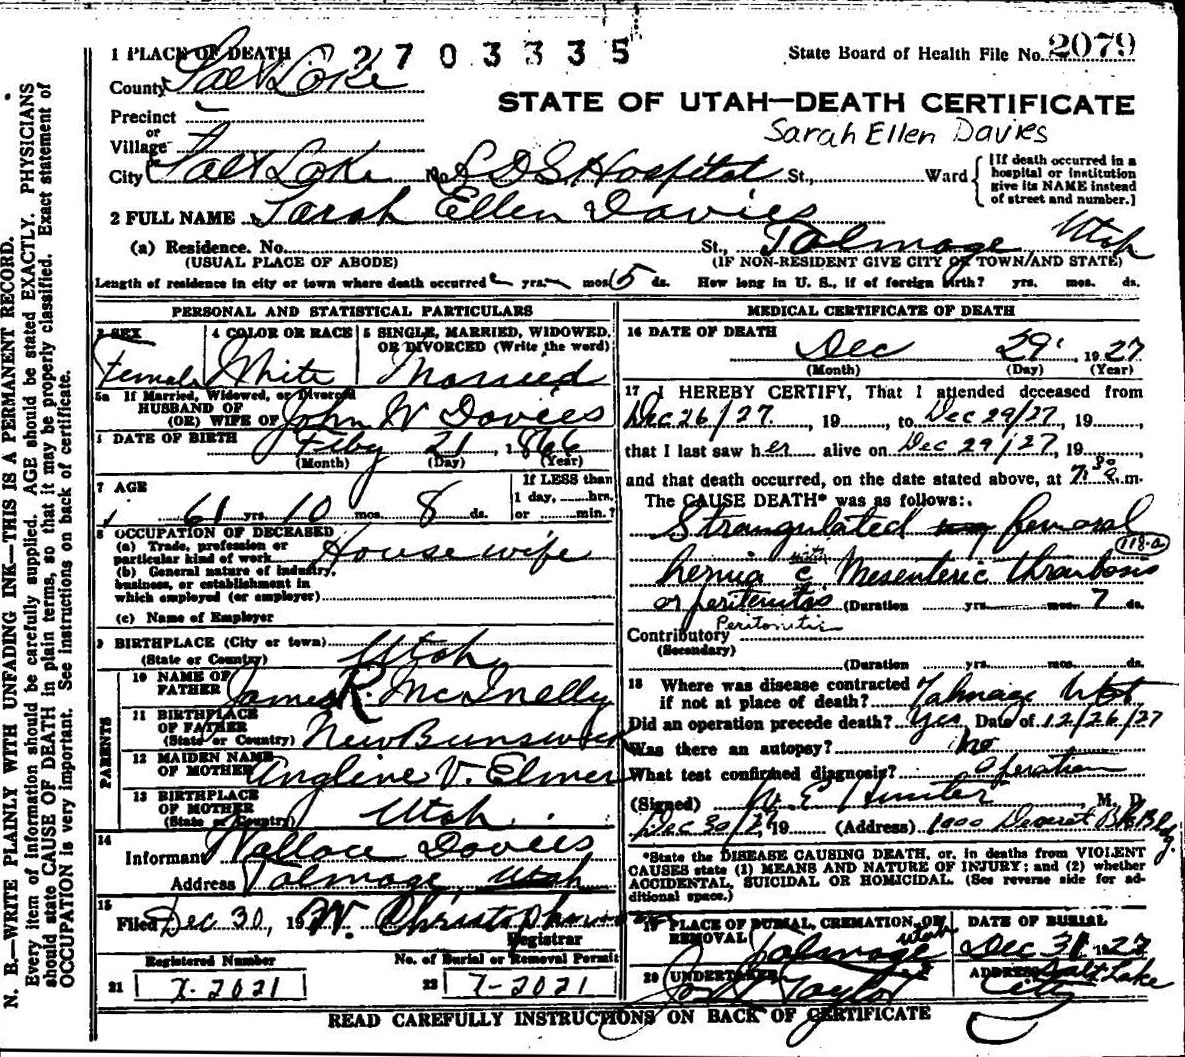 1 PLACE OF DEATH 2703335 State Board of Health File No. 2079
County Salt Lake
STATE OF UTAH—DEATH CERTIFICATE
Precinct
or
Village
Sarah Ellen Davies
City Salt Lake No. L D S Hospital St., Ward
[If death occurred in a hospital or institution give its NAME instead of street and number.]
2 FULL NAME Sarah Ellen Davies
(a) Residence. No. St., Talmage Utah
(USUAL PLACE OF ABODE) (IF NON-RESIDENT GIVE CITY OR TOWN AND STATE)
Length of residence in city or town where death occurred yrs. mos. 5 ds. How long in U. S., if of foreign birth? yrs. mos. ds.
PERSONAL AND STATISTICAL PARTICULARS
3 SEX 4 COLOR OR RACE 5 SINGLE, MARRIED, WIDOWED, OR DIVORCED (Write the word)
Female White Married
5a If Married, Widowed, or Divorced
HUSBAND OF
(OR) WIFE OF John W Davies
6 DATE OF BIRTH Feby 21, 1866
(Month) (Day) (Year)
7 AGE If LESS than
1 day, hrs.
61 yrs. 10 mos. 8 ds. or min.?
8 OCCUPATION OF DECEASED
(a) Trade, profession or
particular kind of work Housewife
(b) General nature of industry,
business, or establishment in
which employed (or employer)
(c) Name of Employer
9 BIRTHPLACE (City or town)
(State or Country) Utah
PARENTS
10 NAME OF
FATHER James R. McInelly
11 BIRTHPLACE
OF FATHER
(State or Country) New Bunswick
12 MAIDEN NAME
OF MOTHER Angline V. Elmer
13 BIRTHPLACE
OF MOTHER
(State or Country) Utah
14
Informant Wallace Davies
Address Talmage, Utah
15
Filed Dec 30, 19
Registrar
Registered Number No. of Burial or Removal Permit
21 7-2021 22 7-2021
MEDICAL CERTIFICATE OF DEATH
16 DATE OF DEATH
Dec 29, 1927
(Month) (Day) (Year)
17 I HEREBY CERTIFY, That I attended deceased from
Dec 26/27, 19, to Dec 29/27, 19,
that I last saw her alive on Dec 29/27, 19,
and that death occurred, on the date stated above, at 7:30 a. m.
The CAUSE DEATH* was as follows:
Strangulated femoral
118-a
with
hernia c Mesenteric thrombosis
or peritenitas (Duration yrs. mos. 7 ds.
Peritonitis
Contributory
(Secondary)
(Duration yrs. mos. ds.
18 Where was disease contracted
if not at place of death? Talmage Utah
Did an operation precede death? Yes Date of 12/26/27
Was there an autopsy? No
What test confirmed diagnosis? Operation
(Signed) E Hunter, M. D.
Dec 30/27, 19 (Address) 1000 Deseret Bk Bldg.
*State the DISEASE CAUSING DEATH, or, in deaths from VIOLENT
CAUSES state (1) MEANS AND NATURE OF INJURY; and (2) whether
ACCIDENTAL, SUICIDAL OR HOMICIDAL. (See reverse side for additional space.)
19 PLACE OF BURIAL, CREMATION, OR REMOVAL Talmage Utah
DATE OF BURIAL Dec 31 1927
20 UNDERTAKER Taylor
ADDRESS Salt Lake City
READ CAREFULLY INSTRUCTIONS ON BACK OF CERTIFICATE
N. B.—WRITE PLAINLY WITH UNFADING INK—THIS IS A PERMANENT RECORD.
Every item of information should be carefully supplied. AGE should be stated EXACTLY. PHYSICIANS
should state CAUSE OF DEATH in plain terms, so that it may be properly classified. Exact statement of
OCCUPATION is very important. See instructions on back of certificate.